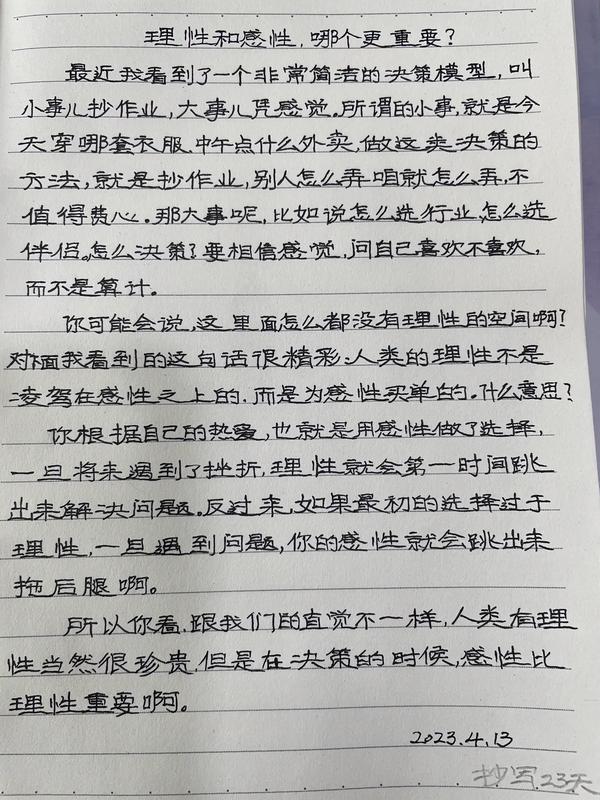 理性和感性，哪个更重要？
最近我看到了一个非常简洁的决策模型，叫
小事儿抄作业，大事儿凭感觉。所谓的小事，就是今
天穿哪套衣服、中午点什么外卖，做这类决策的
方法，就是抄作业，别人怎么弄咱就怎么弄，不
值得费心。那大事呢，比如说怎么选行业，怎么选
伴侣。怎么决策？要相信感觉，问自己喜欢不喜欢，
而不是算计。
你可能会说，这里面怎么都没有理性的空间啊？
对面我看到的这句话很精彩：人类的理性不是
凌驾在感性之上的，而是为感性买单的。什么意思？
你根据自己的热爱，也就是用感性做了选择，
一旦将来遇到了挫折，理性就会第一时间跳
出来解决问题。反过来，如果最初的选择过于
理性，一旦遇到问题，你的感性就会跳出来
拖后腿啊。
所以你看，跟我们的直觉不一样，人类有理
性当然很珍贵，但是在决策的时候，感性比
理性重要啊。
2023.4.13
抄写23天